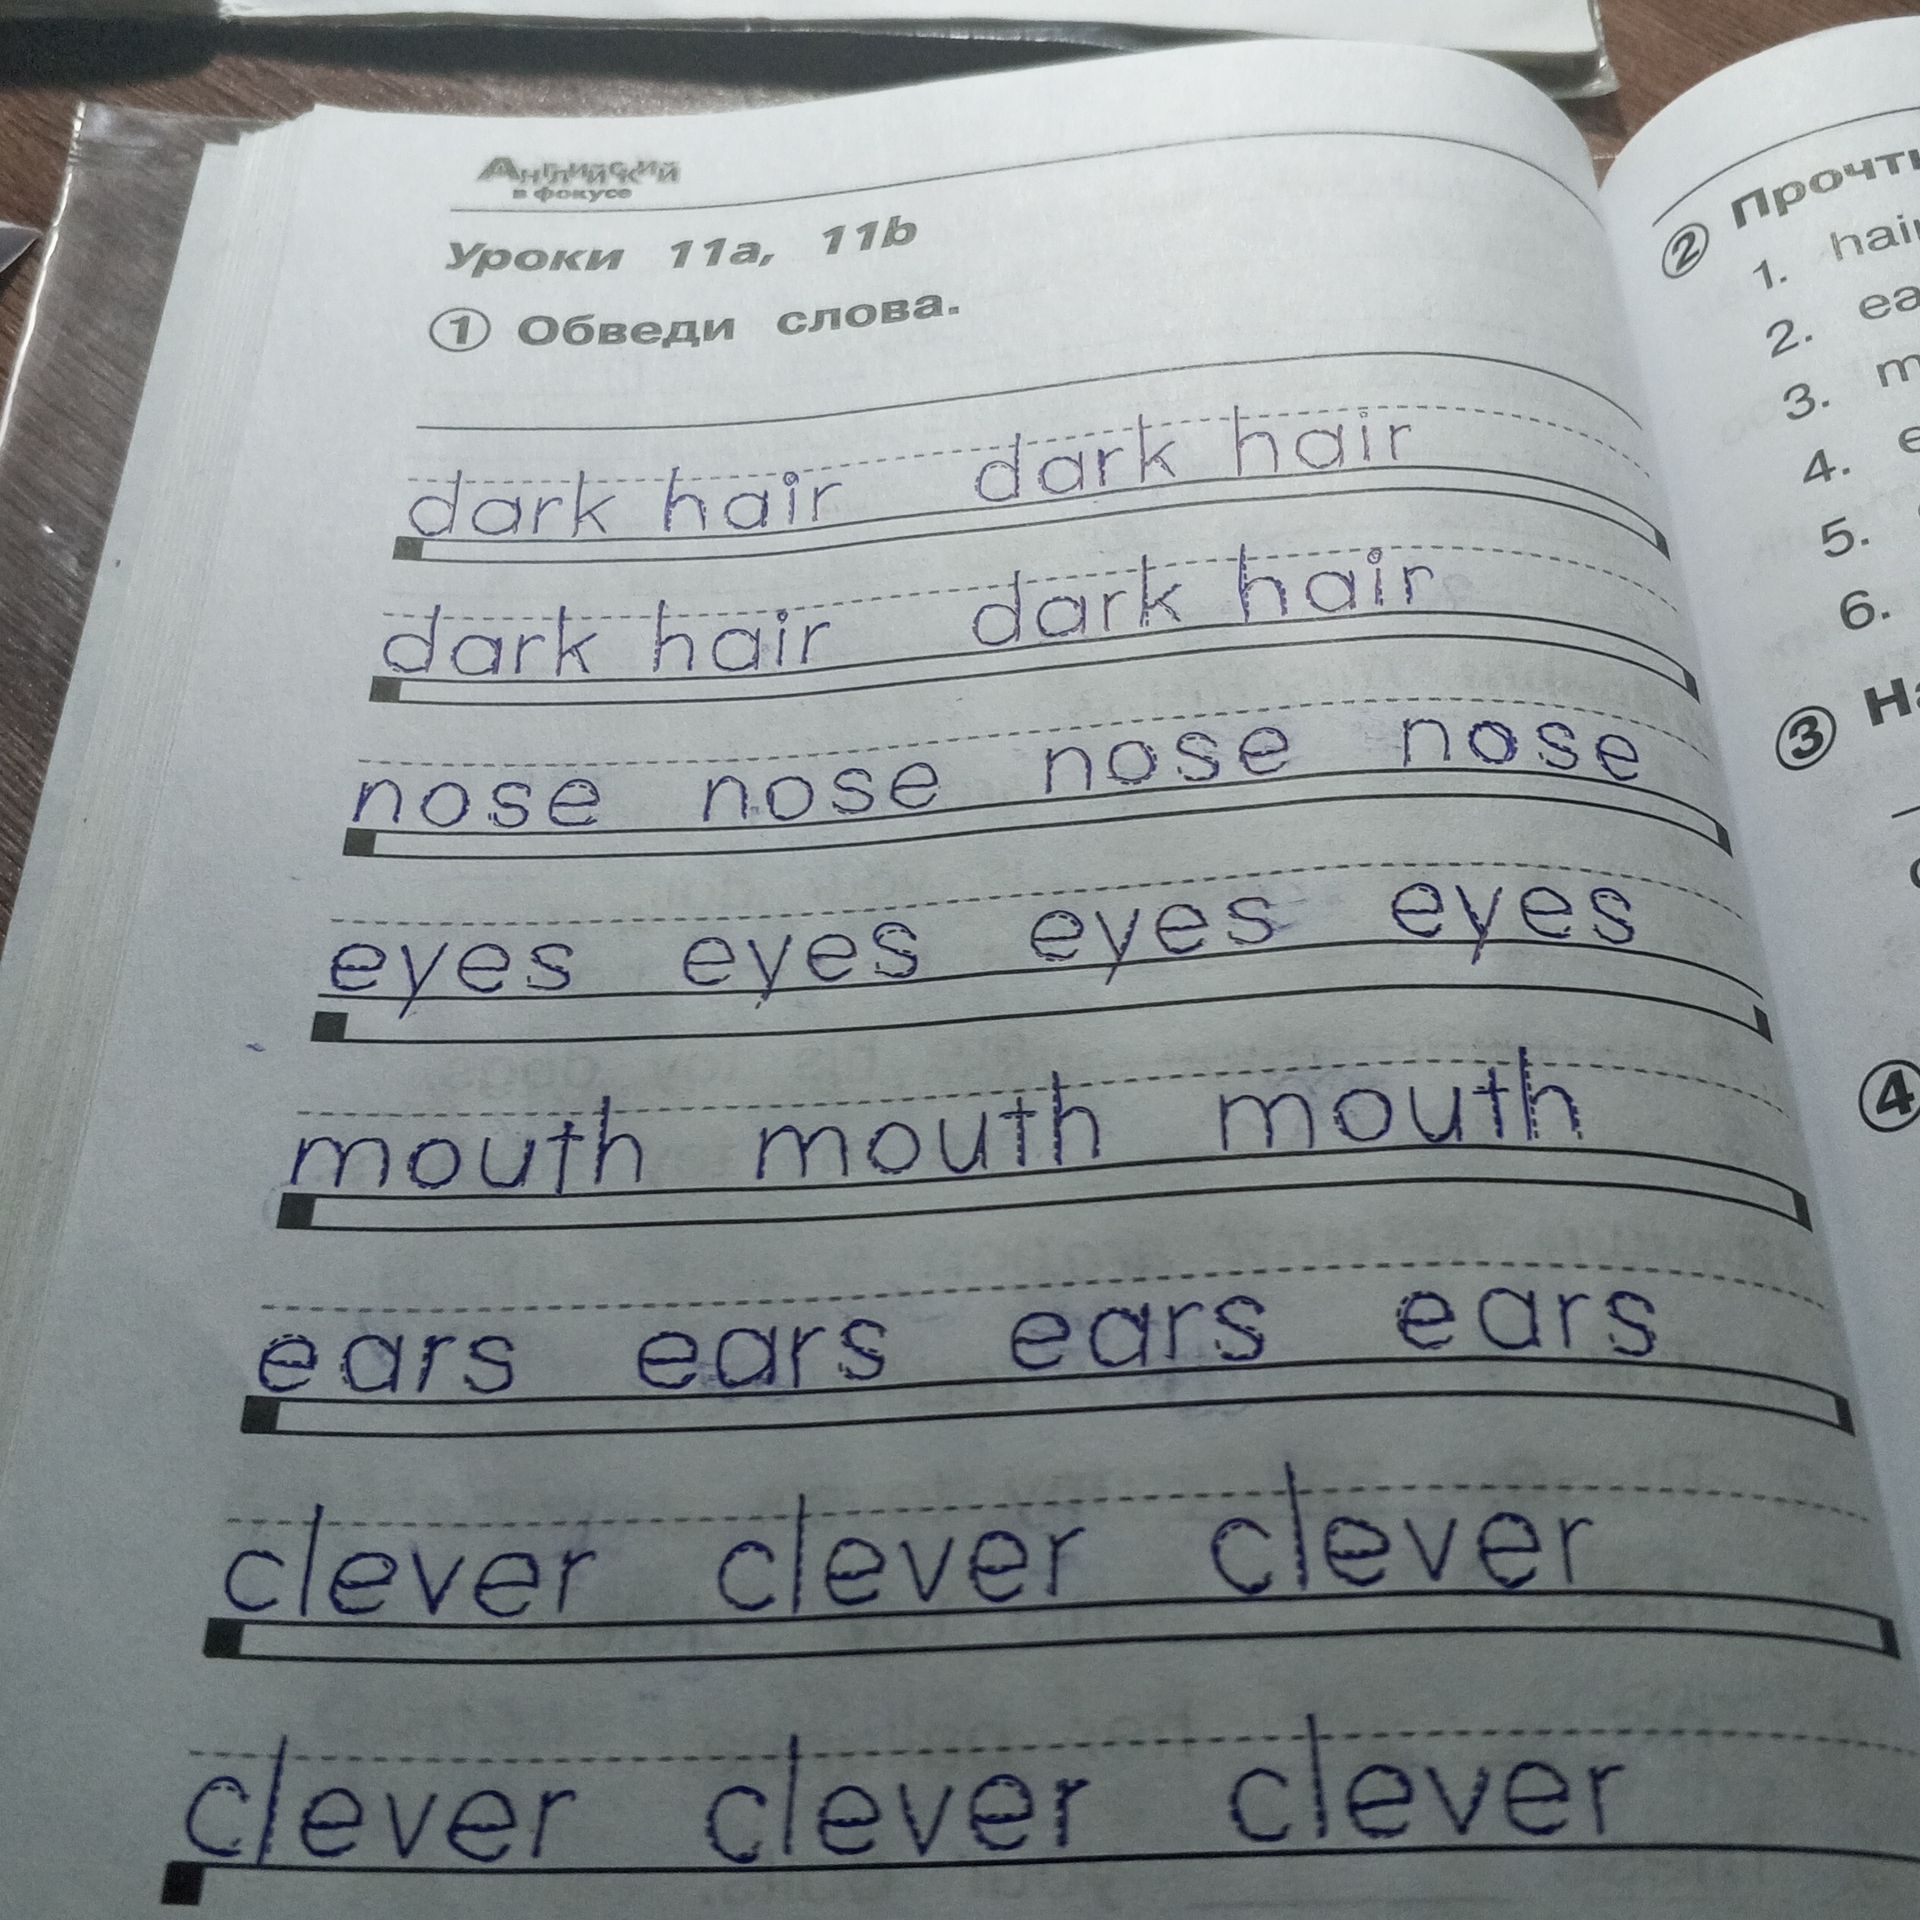 Английский
в фокусе
Уроки 11a, 11b
① Обведи слова.
dark hair dark hair
dark hair dark hair
nose nose nose nose
eyes eyes eyes eyes
mouth mouth mouth
ears ears ears ears
clever clever clever
clever clever clever
②
1. hair
2.
3.
4.
5.
6.
③
④